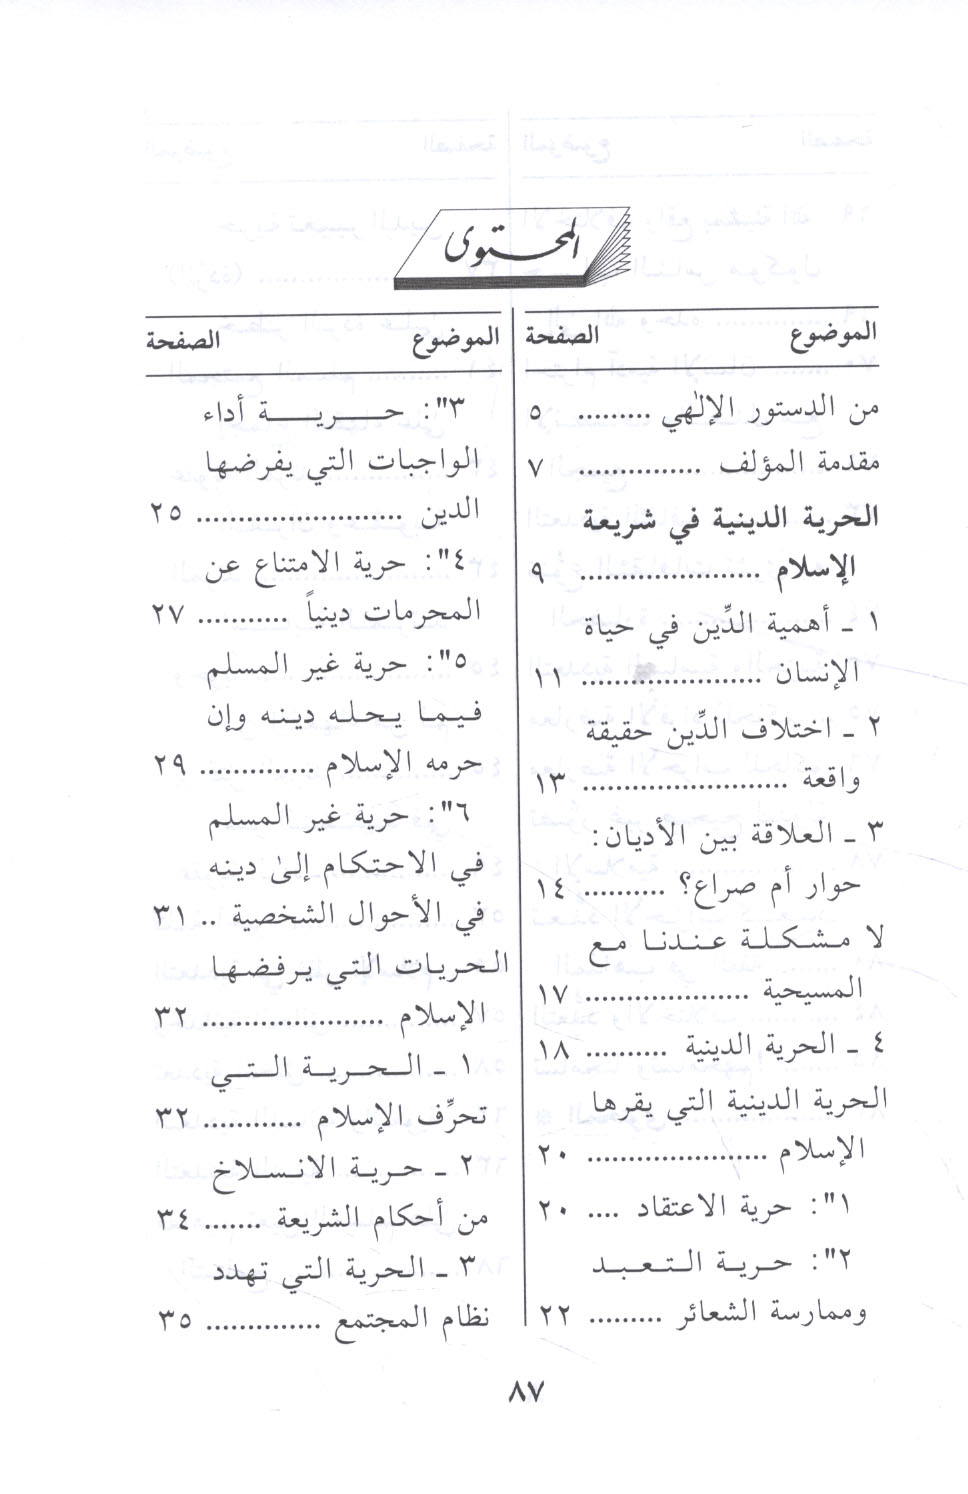 المحتوى
الموضوع الصفحة
من الدستور الإلٰهي ......... ٥
مقدمة المؤلف ............... ٧
الحرية الدينية في شريعة
الإسلام ...................... ٩
١ ـ أهمية الدِّين في حياة
الإنسان ...................... ١١
٢ ـ اختلاف الدِّين حقيقة
واقعة ......................... ١٣
٣ ـ العلاقة بين الأديان:
حوار أم صراع؟ .......... ١٤
لا مشكلة عندنا مع
المسيحية .................... ١٧
٤ ـ الحرية الدينية .......... ١٨
الحرية الدينية التي يقرها
الإسلام ...................... ٢٠
١": حرية الاعتقاد .... ٢٠
٢": حرية التعبد
وممارسة الشعائر ......... ٢٢
الموضوع الصفحة
٣": حرية أداء
الواجبات التي يفرضها
الدين ......................... ٢٥
٤": حرية الامتناع عن
المحرمات دينياً ........... ٢٧
٥": حرية غير المسلم
فيما يحله دينه وإن
حرمه الإسلام .............. ٢٩
٦": حرية غير المسلم
في الاحتكام إلىٰ دينه
في الأحوال الشخصية .. ٣١
الحريات التي يرفضها
الإسلام ...................... ٣٢
١ ـ الحرية التي
تحرِّف الإسلام ............ ٣٢
٢ ـ حرية الانسلاخ
من أحكام الشريعة ....... ٣٤
٣ ـ الحرية التي تهدد
نظام المجتمع .............. ٣٥
٨٧